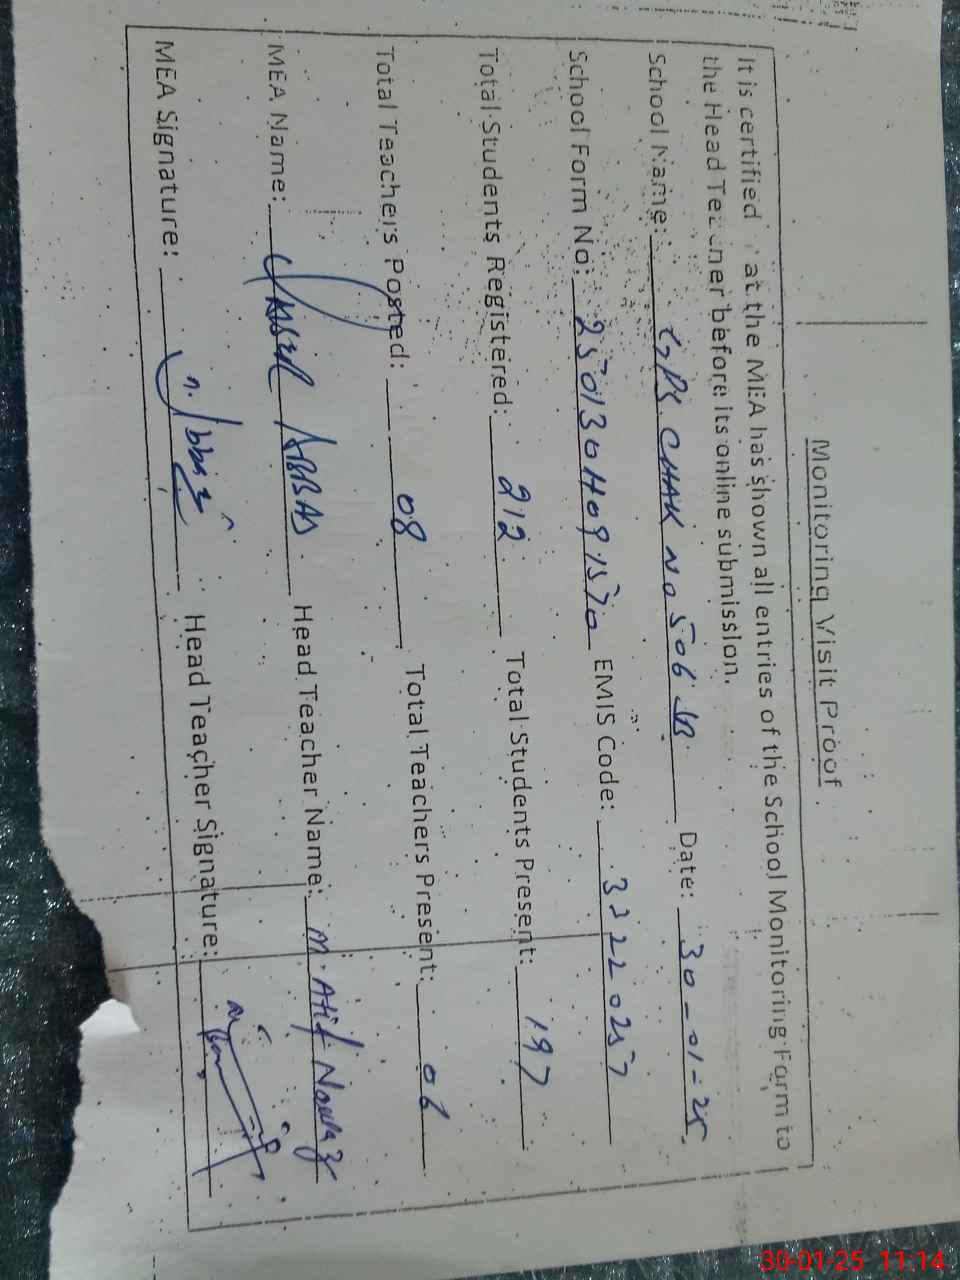 Monitoring Visit Proof
It is certified at the MEA has shown all entries of the School Monitoring Form to
the Head Teacher before its online submission.
School Name: GPS CHAK NO 506 JB Date: 30-01-25
School Form No: EMIS Code: 33220257
Total Students Registered: 212 Total Students Present: 197
Total Teachers Posted: 08 Total Teachers Present: 06
MEA Name: ABBAS Head Teacher Name: M. Atif Nawaz
MEA Signature: Head Teacher Signature:
30-01-25 11:14